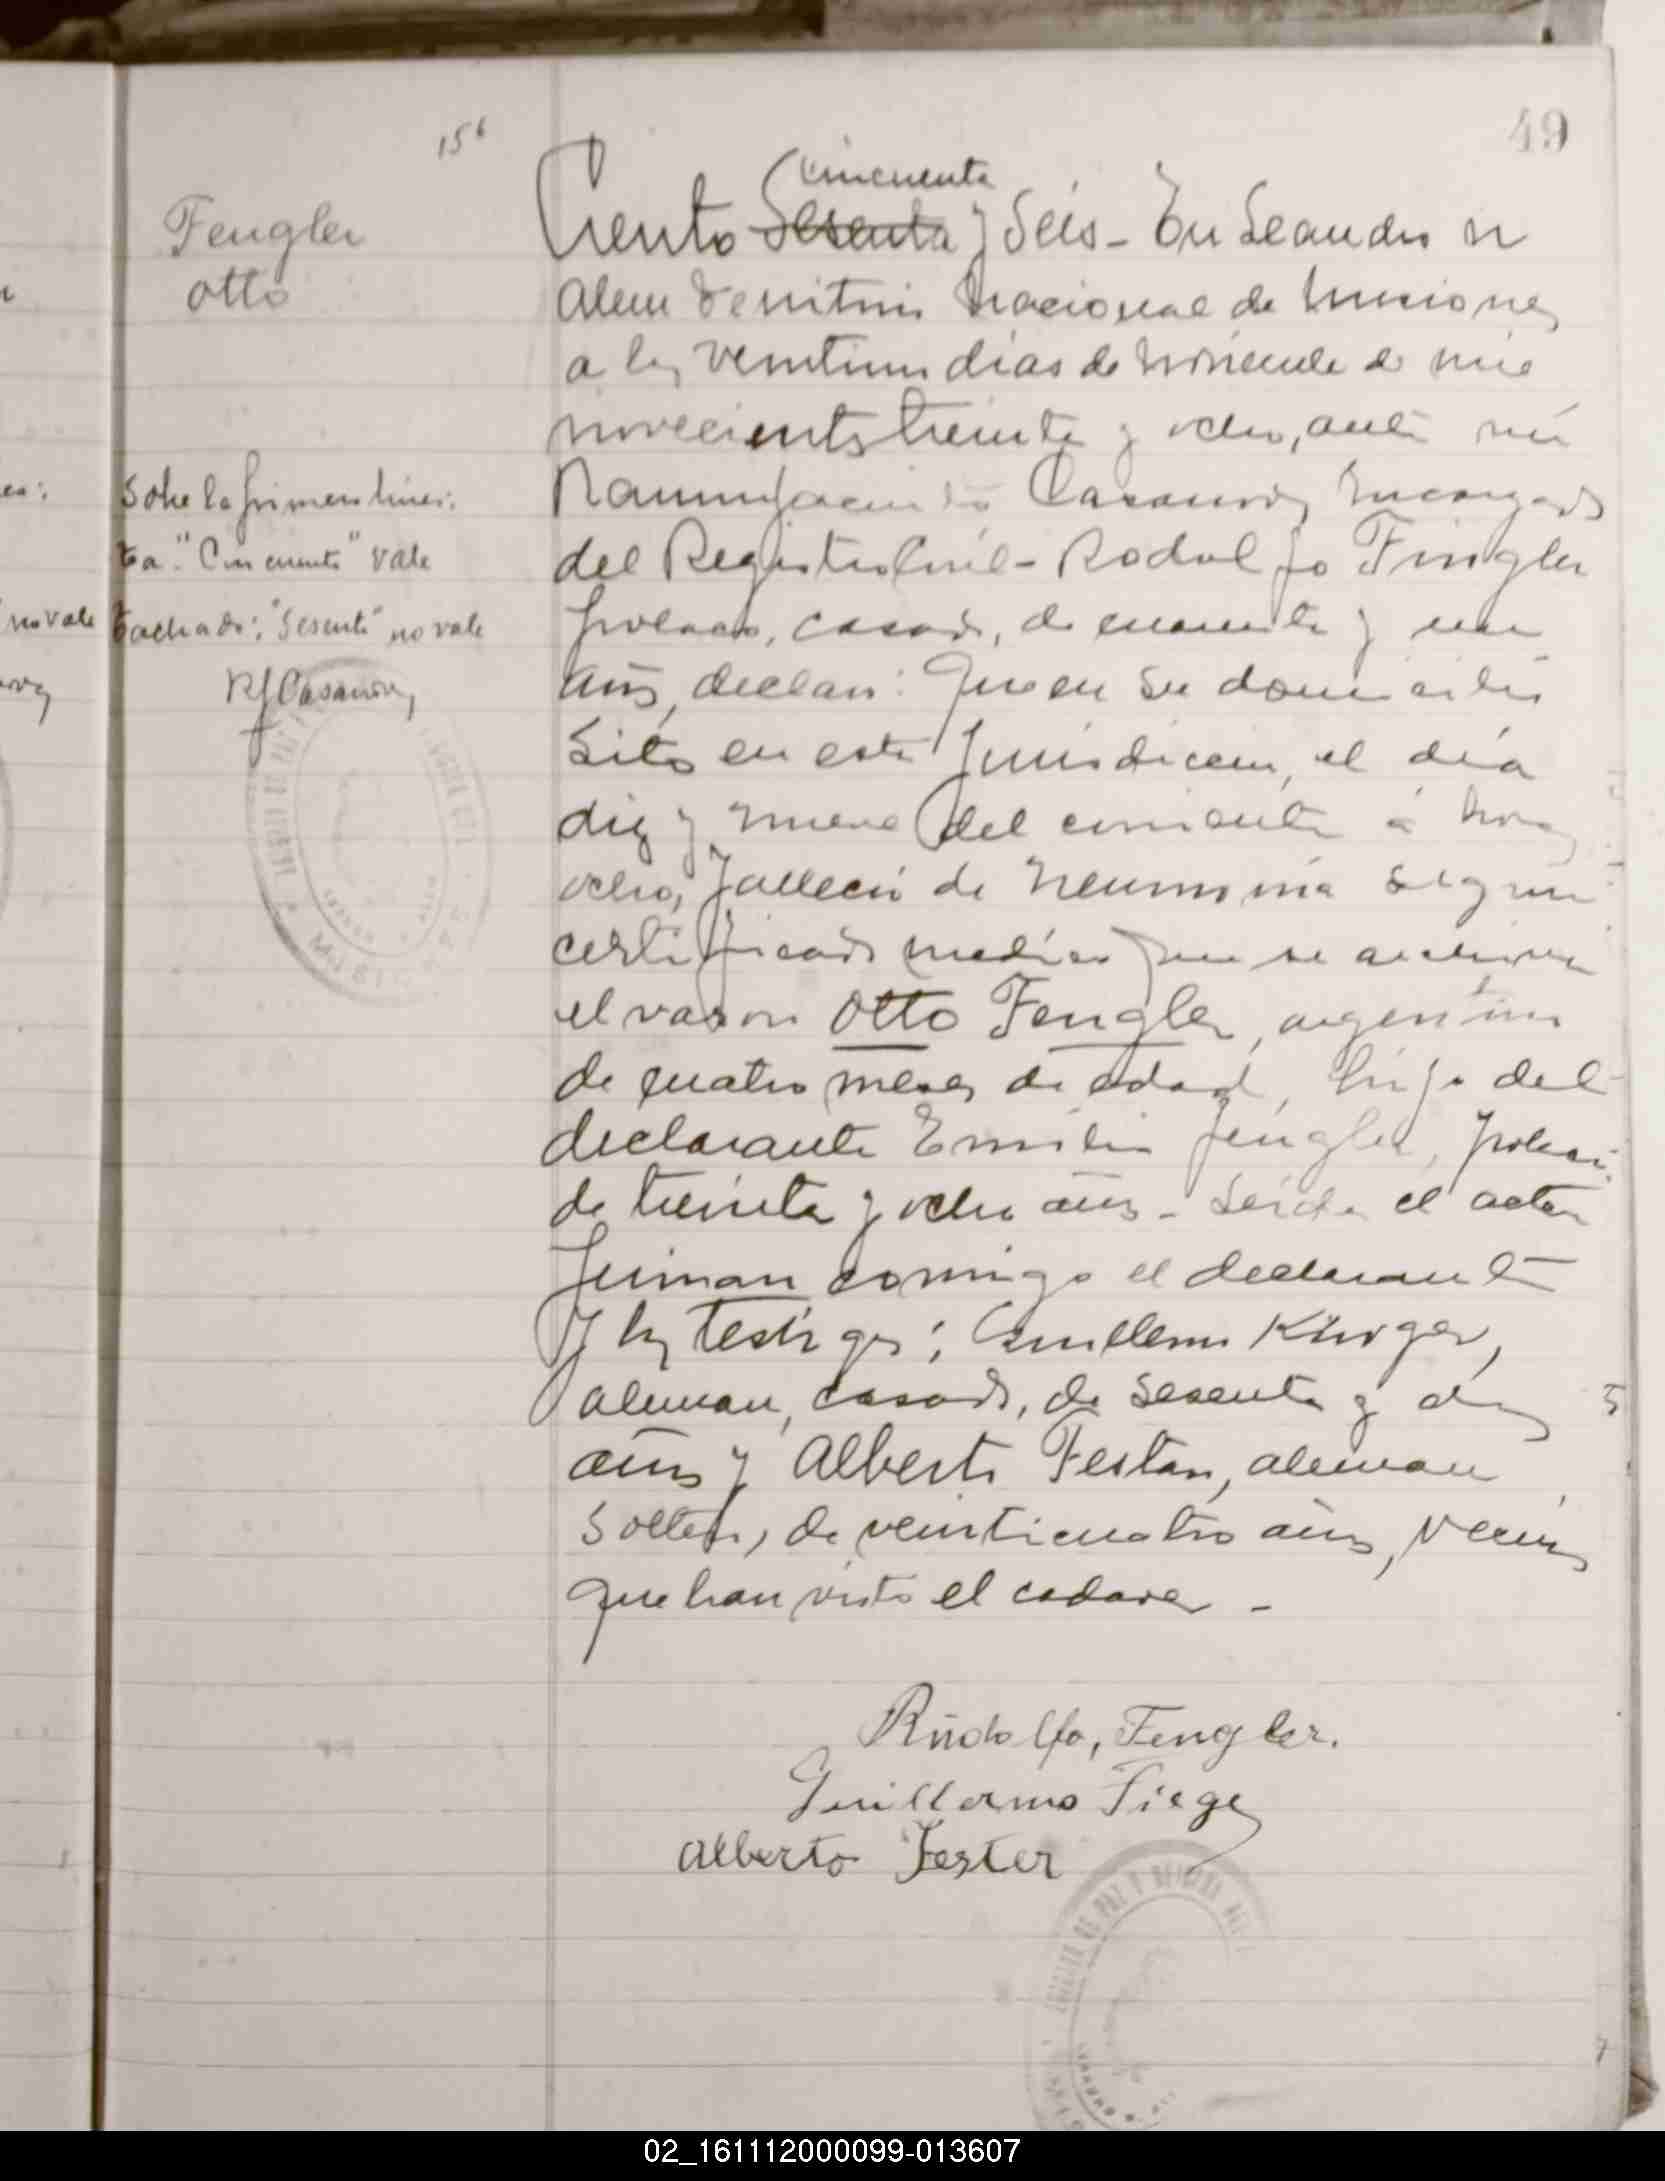 49
156
Fengler
Otto
Ciento cincuenta Sesenta y Seis - En Leandro N
Alem Territorio Nacional de Misiones
a los veintiun dias de Noviembre de mil
novecientos treinta y ocho, ante mi
Casanova, Encargado
del Registro Civil - Rodolfo Fengler
polaco, casado, de cuarenta y un
años, declaró: Que en su domicilio
sito en esta Jurisdiccion, el día
diez y nueve del corriente a horas
ocho, falleció de Neumonia segun
certificado medico que se archiva
el varon Otto Fengler, argentino
de cuatro meses de edad, hijo del
declarante Emilia Fengler, polaca
de treinta y ocho años - Leida el acta
firman conmigo el declarante
y los testigos; Guillermo
aleman, casado, de sesenta y dos
años y Alberto Festar, aleman
soltero, de veinticuatro años, vecinos
que han visto el cadaver -
Sobre la primera linea:
Ea: "Cincuenta" vale
Tachado: "Sesenta" no vale
RJCasanova
no vale
Rudolfo, Fengler.
Guillermo Fiege
Alberto Fester
JUZGADO DE PAZ Y OFICINA DEL
MISIONES
02_161112000099-013607